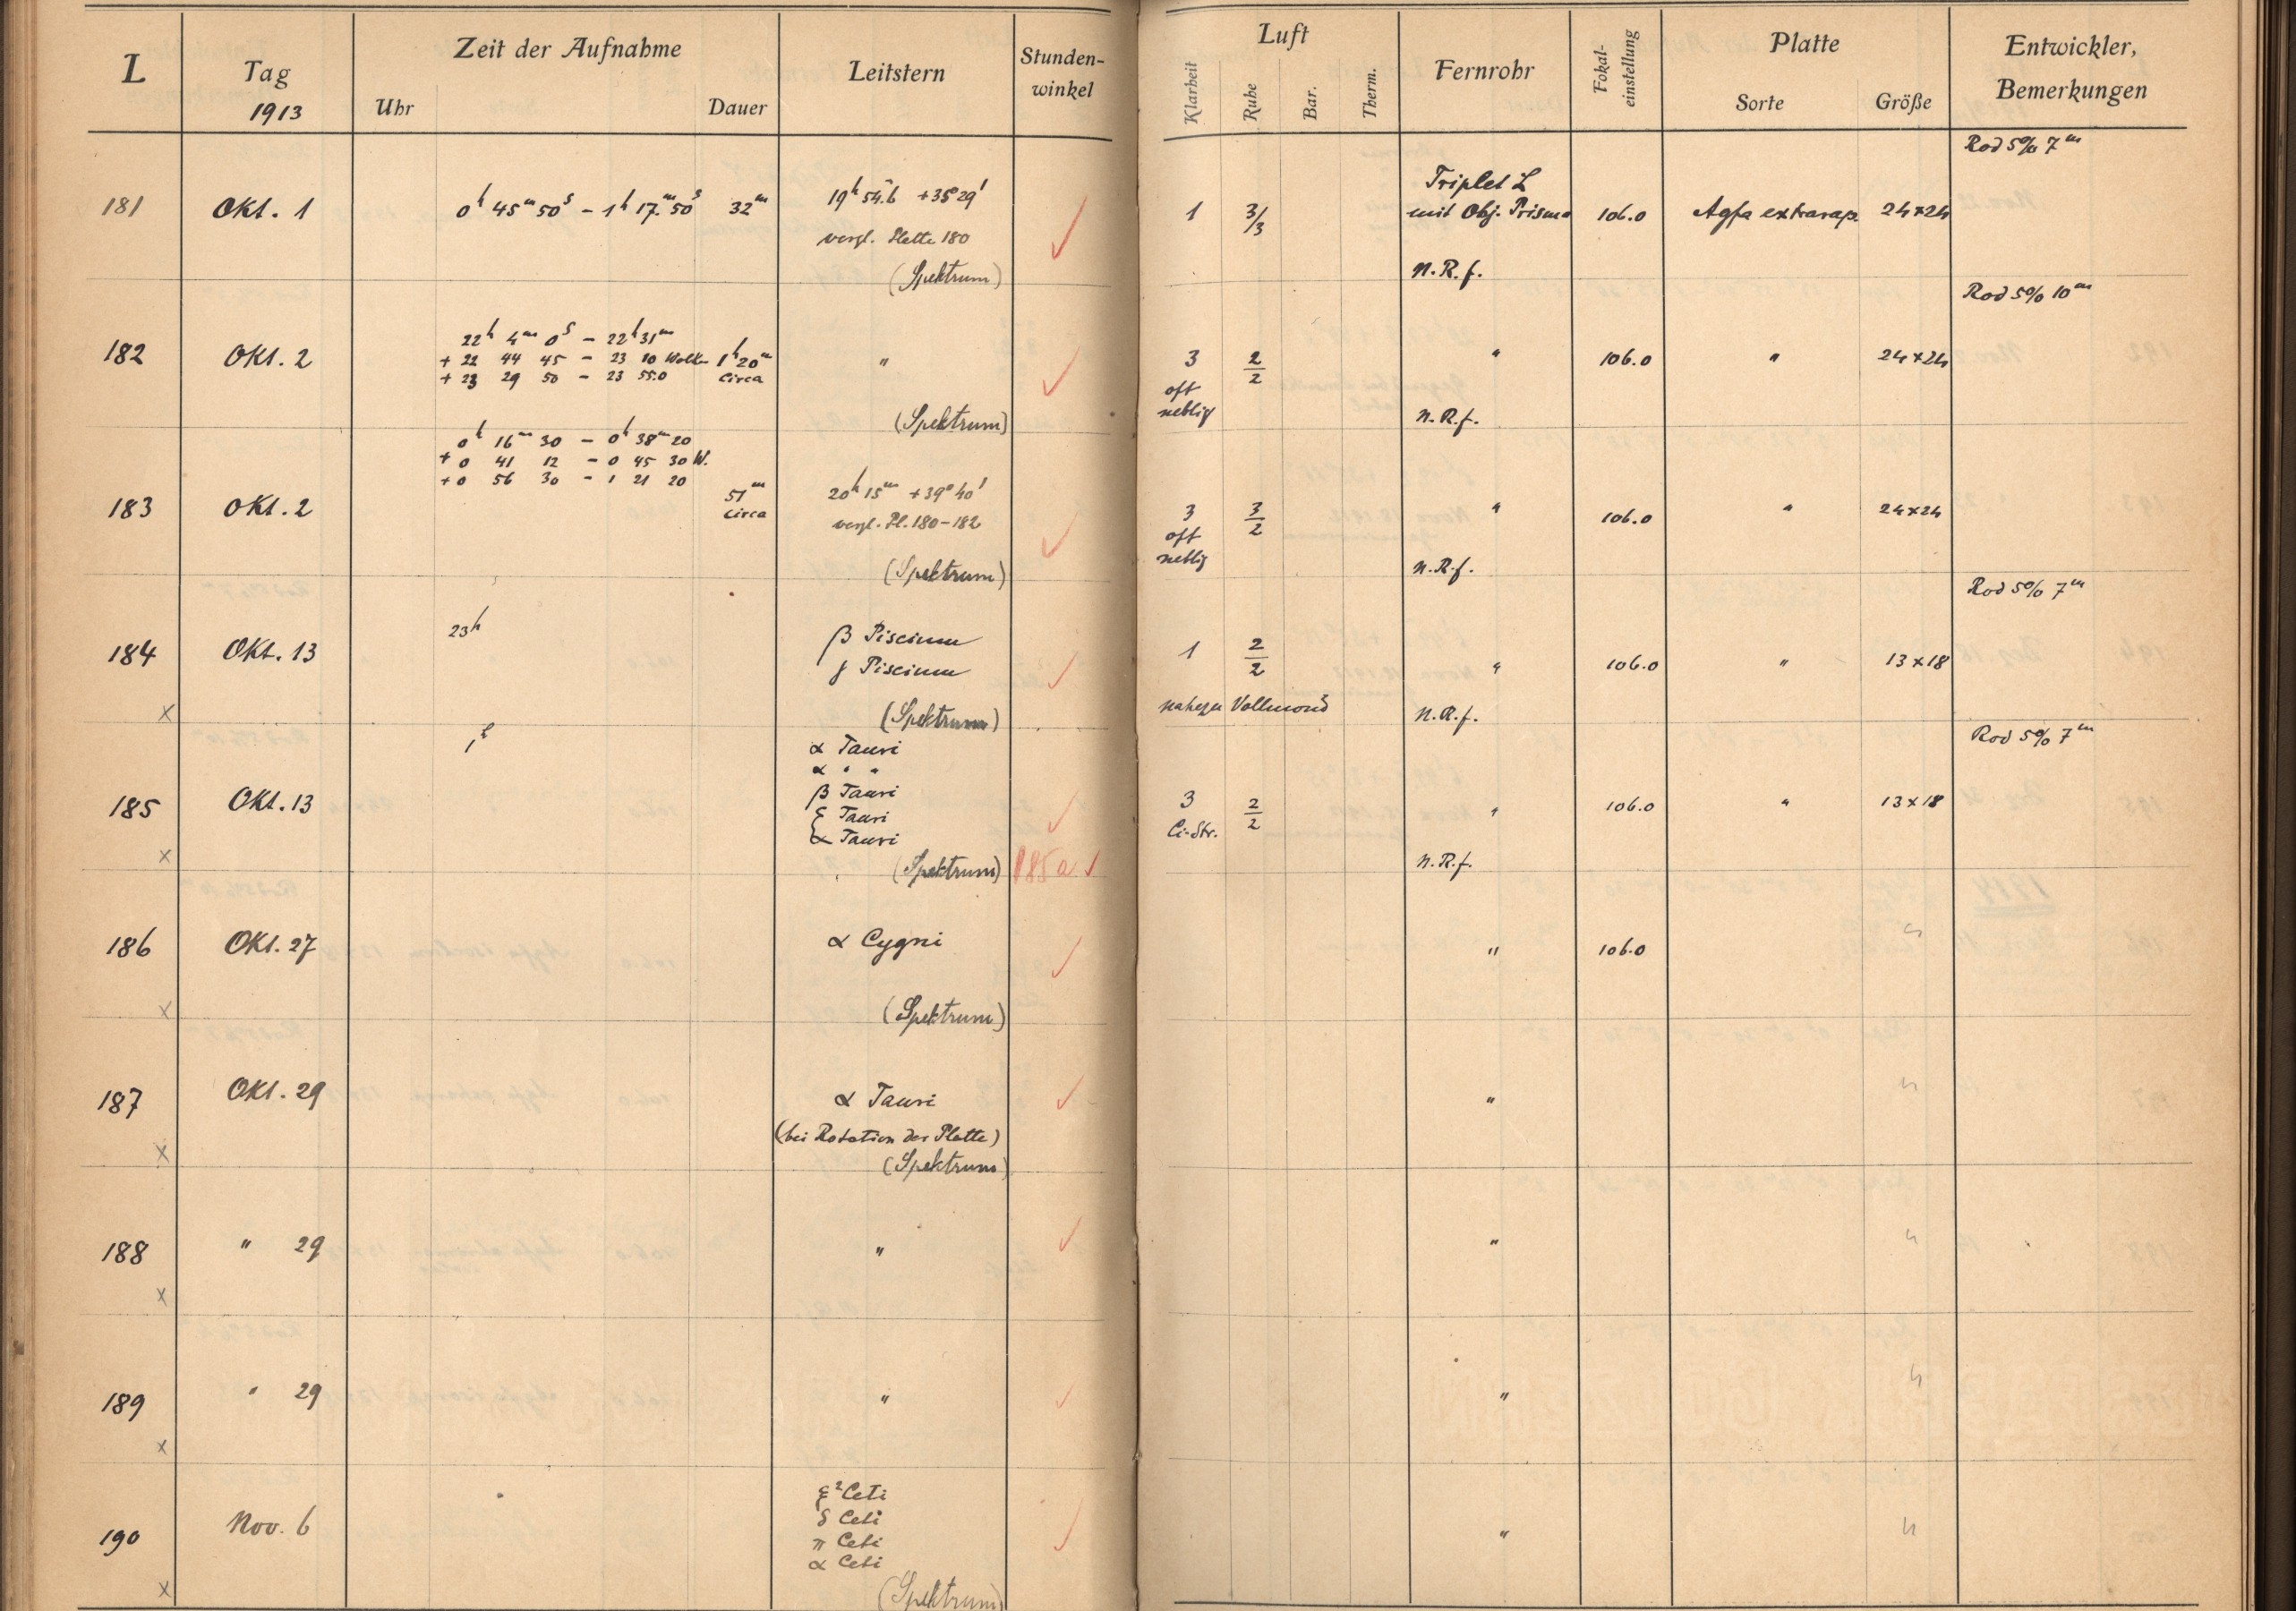 L
Tag
1913
Zeit der Aufnahme
Uhr
Dauer
Leitstern
Stunden-
winkel
Luft
Klarheit
Ruhe
Bar.
Therm.
Fernrohr
Fokal-
einstellung
Platte
Sorte
Größe
Entwickler,
Bemerkungen
Rod 5% 7m
181
Okt. 1
0h 45m 50s - 1h 17m 50s
32m
19h 54.m6 +35°29'
vergl. Platte 180
(Spektrum)
1
3/3
Triplet L
mit Obj. Prisma
N.R.f.
106.0
Agfa extrarap.
24×24
Rod 5% 10m
182
Okt. 2
22h 4m 0s - 22h 31m
+ 22 44 45 - 23 10 Wolk
+ 23 29 50 - 23 55.0
1h 20m
circa
"
(Spektrum)
3
oft
neblig
2/2
"
N.R.f.
106.0
"
24×24
183
Okt. 2
0h 16m 30 - 0h 38m 20
+ 0 41 12 - 0 45 30 W.
+ 0 56 30 - 1 21 20
51m
circa
20h 15m +39°40'
vergl. Pl. 180-182
(Spektrum)
3
oft
neblig
3/2
"
N.R.f.
106.0
"
24×24
Rod 5% 7m
184
×
Okt. 13
23h
β Piscium
γ Piscium
(Spektrum)
1
2/2
nahezu Vollmond
"
N.R.f.
106.0
"
13×18
Rod 5% 7m
185
×
Okt. 13
1h
α Tauri
α " "
β Tauri
ξ Tauri
α Tauri
(Spektrum)
185a
3
Ci-Str.
2/2
"
N.R.f.
106.0
"
13×18
186
×
Okt. 27
α Cygni
(Spektrum)
"
106.0
"
187
×
Okt. 29
α Tauri
(bei Rotation der Platte)
(Spektrum)
"
"
188
×
" 29
"
"
"
189
×
" 29
"
"
"
190
×
Nov. 6
ξ² Ceti
δ Ceti
π Ceti
α Ceti
(Spektrum)
"
"